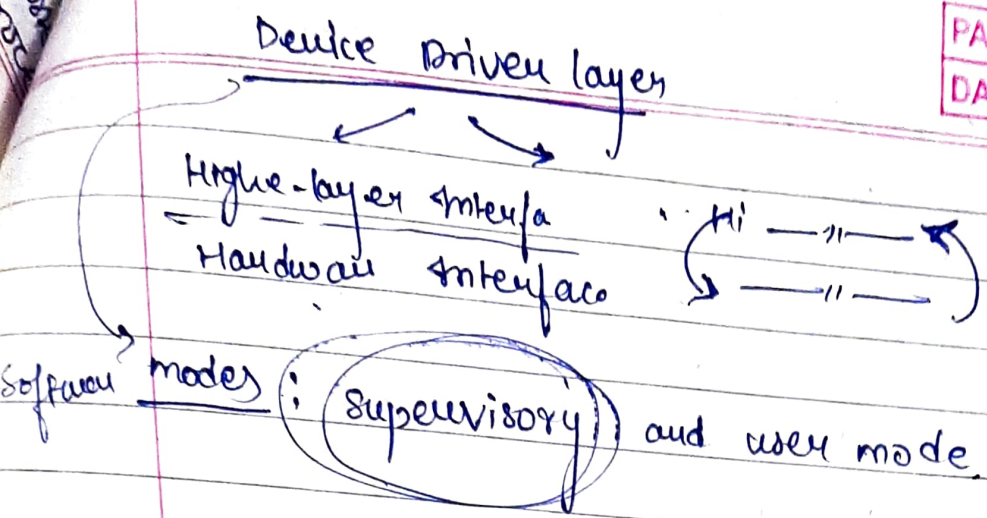 PA
DA
Device Driver layer
Highe-layer Interfa
Hi —〃—
Hardware Interface
—〃—
Software modes : Supervisory and user mode.